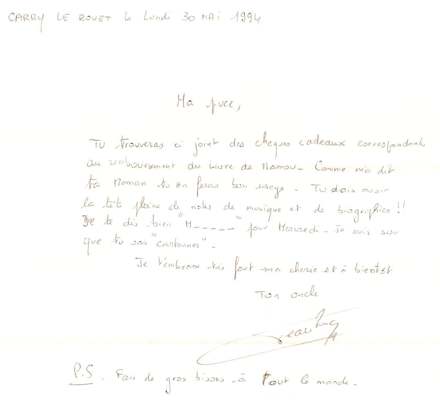 CARRY LE ROUET le Lundi 30 MAI 1994
Ma puce,
Tu trouveras ci joint des chèques cadeaux correspondant
au remboursement du livre de Mamou. Comme m'a dit
ta Maman tu en feras bon usage. Tu dois avoir
la tête pleine de notes de musique et de biographies!!
Je te dis bien "M_____" pour Mercredi. Je suis sur
que tu vas "cartonner".
Je t'embrasse très fort ma chérie et à bientôt
Ton oncle
P.S. Fais de gros bisous à Tout le monde.